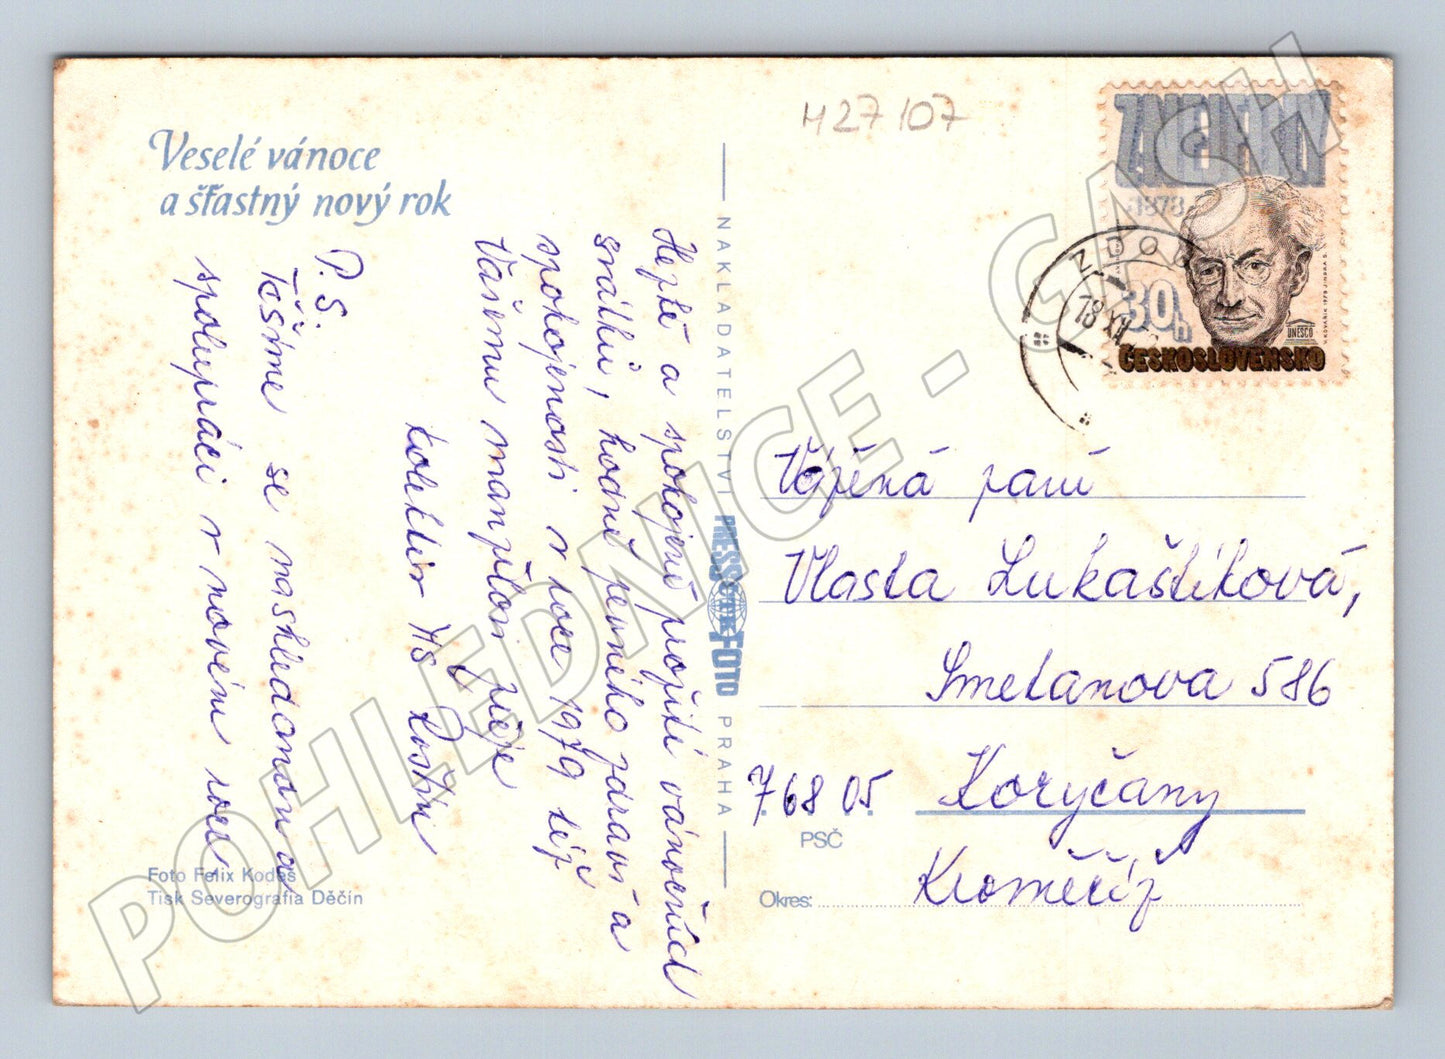 Veselé vánoce
a šťastný nový rok
H27107
Hezké a spokojené prožití vánočních
svátků, hodně pevného zdraví a
spokojenosti v roce 1979 též
Vašemu manželovi přeje
kolektiv
P.S.
Těšíme se nashledanou a
spolupráci v novém roce
Foto Felix Kodeš
Tisk Severografia Děčín
NAKLADATELSTVÍ PRESSFOTO PRAHA
ZNEJEDLÝ
1878
30h
UNESCO
ČESKOSLOVENSKO
78 XII
Vážená paní
Vlasta Lukaštíková,
Smetanova 586
768 05 Koryčany
PSČ
Okres: Kroměříž
POHLEDNICE - CASH